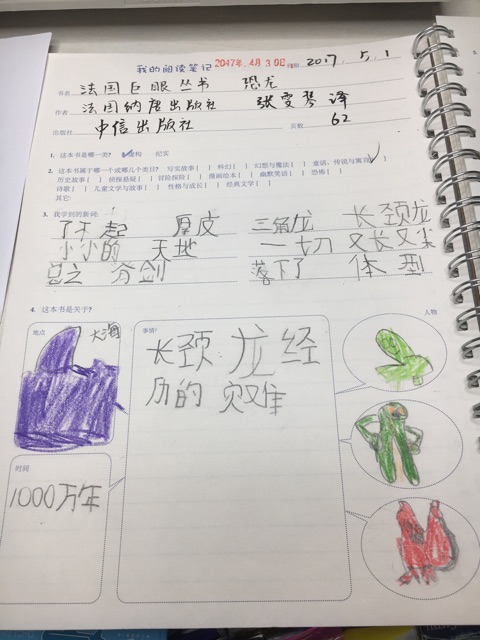 我的阅读笔记 2017年.4月30日 日期 2017.5.1
书名 法国巨眼丛书 恐龙
作者 法国纳唐出版社 张雯琴 译
出版社 中信出版社 页数 62
1. 这本书是哪一类? ✓虚构 纪实
2. 这本书属于哪一个或哪几个类目? 写实故事[ ] 科幻[ ] 幻想与魔法[ ] 童话、传说与寓言[✓]
历史故事[ ] 侦探悬疑[ ] 冒险探险[ ] 漫画绘本[ ] 幽默笑话[ ] 恐怖[ ]
诗歌[ ] 儿童文学与故事[ ] 性格与成长[ ] 经典文学[ ]
其它:
3. 我学到的新词:
了不起 厚皮 三角龙 长颈龙
小小的 天地 一切 又长又尖
总之 落下了 体型
4. 这本书是关于?
地点 大海
事情? 人物
长颈龙经
历的灾难
时间
1000万年